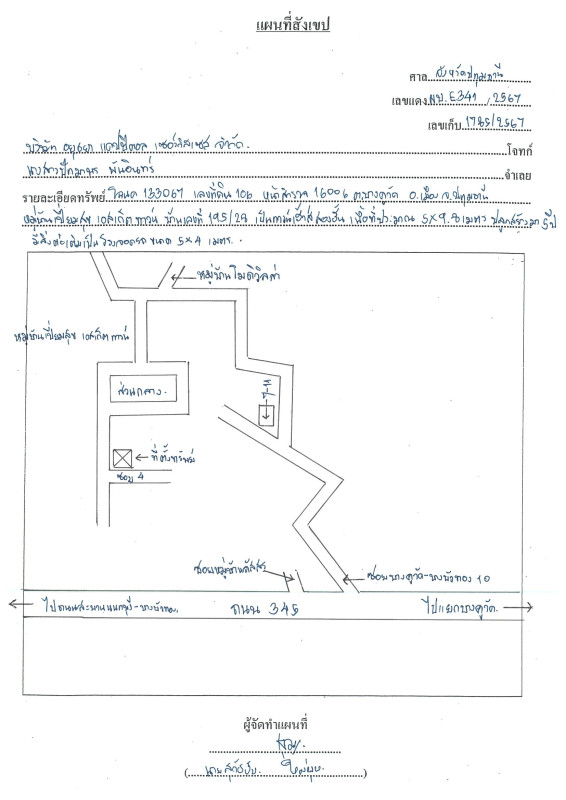 แผนที่สังเขป
ศาล จังหวัดปทุมธานี
เลขแดง ผบ.E341 /2567
เลขเก็บ 1785/2567
บริษัท อยุธยา แคปปิตอล เซอร์วิสเซส จำกัด. โจทก์
นางสาวปัทมาพร พันอินทร์ จำเลย
รายละเอียดทรัพย์ โฉนด 133067 เลขที่ดิน 106 หน้าสำรวจ 16006 ต.บางคูวัด อ.เมือง จ.ปทุมธานี
หมู่บ้านเปี่ยมสุข เอสเก็ต ทาวน์ บ้านเลขที่ 195/28 เป็นทาวน์เฮ้าส์สองชั้น เนื้อที่ประมาณ 5×9.8 เมตร ปลูกสร้างมา 5 ปี
มีสิ่งต่อเติมเป็นโรงจอดรถ ขนาด 5×4 เมตร.
หมู่บ้านไมดิวิลล่า
หมู่บ้านเปี่ยมสุข เอสเก็ต ทาวน์
ส่วนกลาง.
ที่ตั้งทรัพย์
ซอย 4
ซอยบางคูวัด-บางบัวทอง 10
ไปถนนสะพานนนทบุรี-บางบัวทอง.
ถนน 345
ไปแยกบางคูวัด.
ผู้จัดทำแผนที่